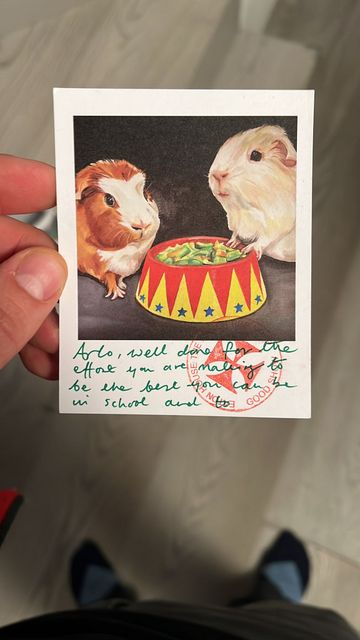 Arlo, well done for the
effort you are making to
be the best you can be
in school and to
GOOD